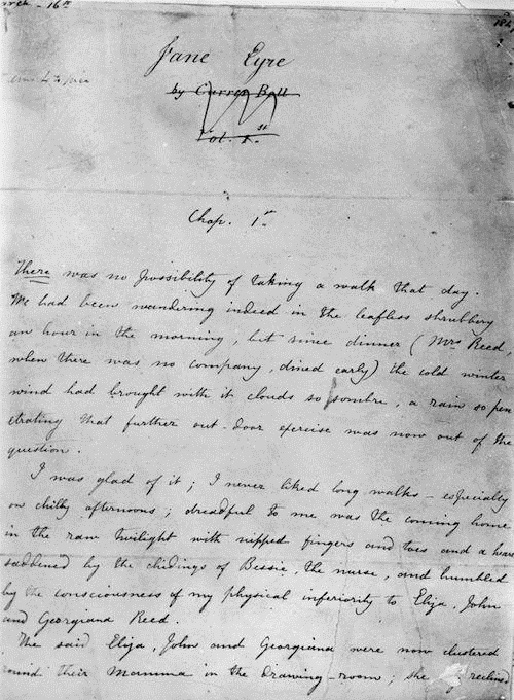 16th
184
Jane Eyre
by Currer Bell
Vol. 1.st
Chap. 1st
There was no possibility of taking a walk that day.
We had been wandering indeed in the leafless shrubbery
an hour in the morning, but since dinner (Mrs Reed,
when there was no company, dined early) the cold winter
wind had brought with it clouds so sombre, a rain so pen
etrating that further out-door exercise was now out of the
question.
I was glad of it; I never liked long walks - especially
on chilly afternoons; dreadful to me was the coming home
in the raw twilight with nipped fingers and toes and a heart
saddened by the chidings of Bessie, the nurse, and humbled
by the consciousness of my physical inferiority to Eliza, John
and Georgiana Reed.
The said Eliza, John and Georgiana were now clustered
round their Mamma in the drawing-room; she reclined